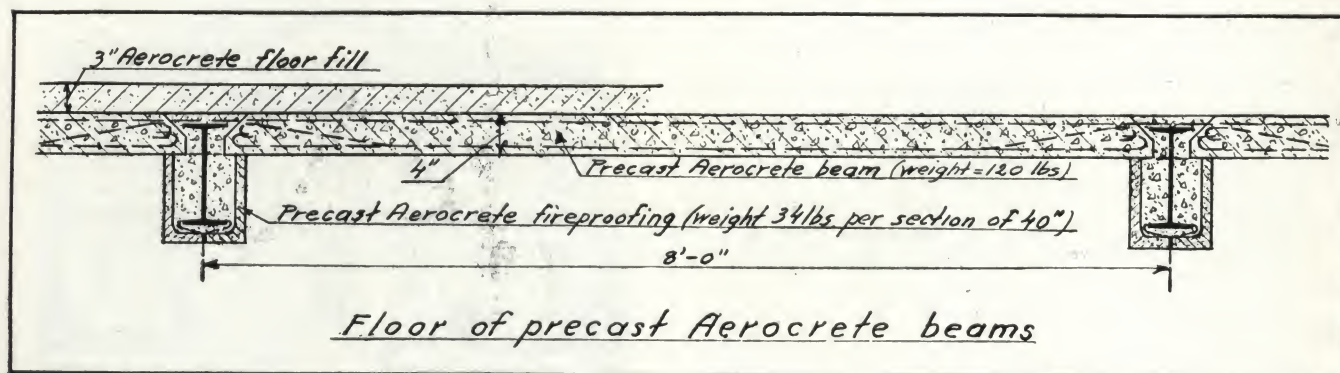 3" Aerocrete floor fill
4"
Precast Aerocrete beam (weight=120 lbs)
Precast Aerocrete fireproofing (weight 34lbs. per section of 40")
8'-0"
Floor of precast Aerocrete beams